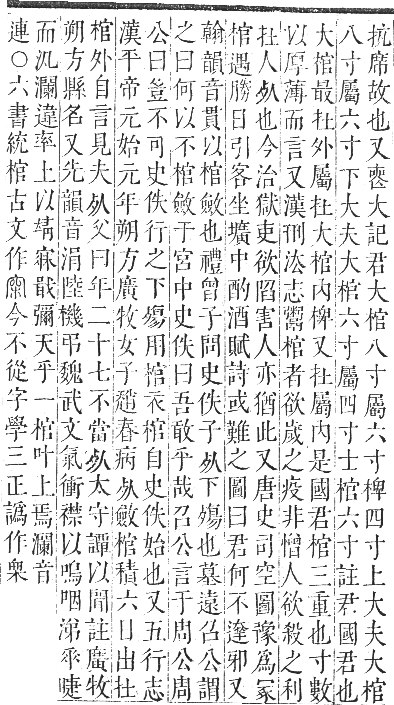 抗席故也又喪大記君大棺八寸屬六寸椑四寸上大夫大棺
八寸屬六寸下大夫大棺六寸屬四寸士棺六寸註君國君也
大棺最在外屬在大棺內椑又在屬內是國君棺三重也寸數
以厚薄而言又漢刑法志鬻棺者欲歲之疫非憎人欲殺之利
在人死也今治獄吏欲陷害人亦猶此又唐史司空圖豫為冡
棺遇勝日引客坐壙中酌酒賦詩或難之圖曰君何不達邪又
翰韻音貫以棺斂也禮曾子問史佚子死下殤也墓遠召公謂
之曰何以不棺斂于宮中史佚曰吾敢乎哉召公言于周公周
公曰豈不可史佚行之下殤用棺衣棺自史佚始也又五行志
漢平帝元始元年朔方廣牧女子趙春病死斂棺積六日出在
棺外自言見夫死父曰年二十七不當死太守譚以聞註廣牧
朔方縣名又先韻音涓陸機弔魏武文氣衝襟以嗚咽涕垂睫
而汍瀾違率土以靖寐戢彌天乎一棺叶上焉瀾音
連○六書統棺古文作𣞀今不從字學三正譌作㮯